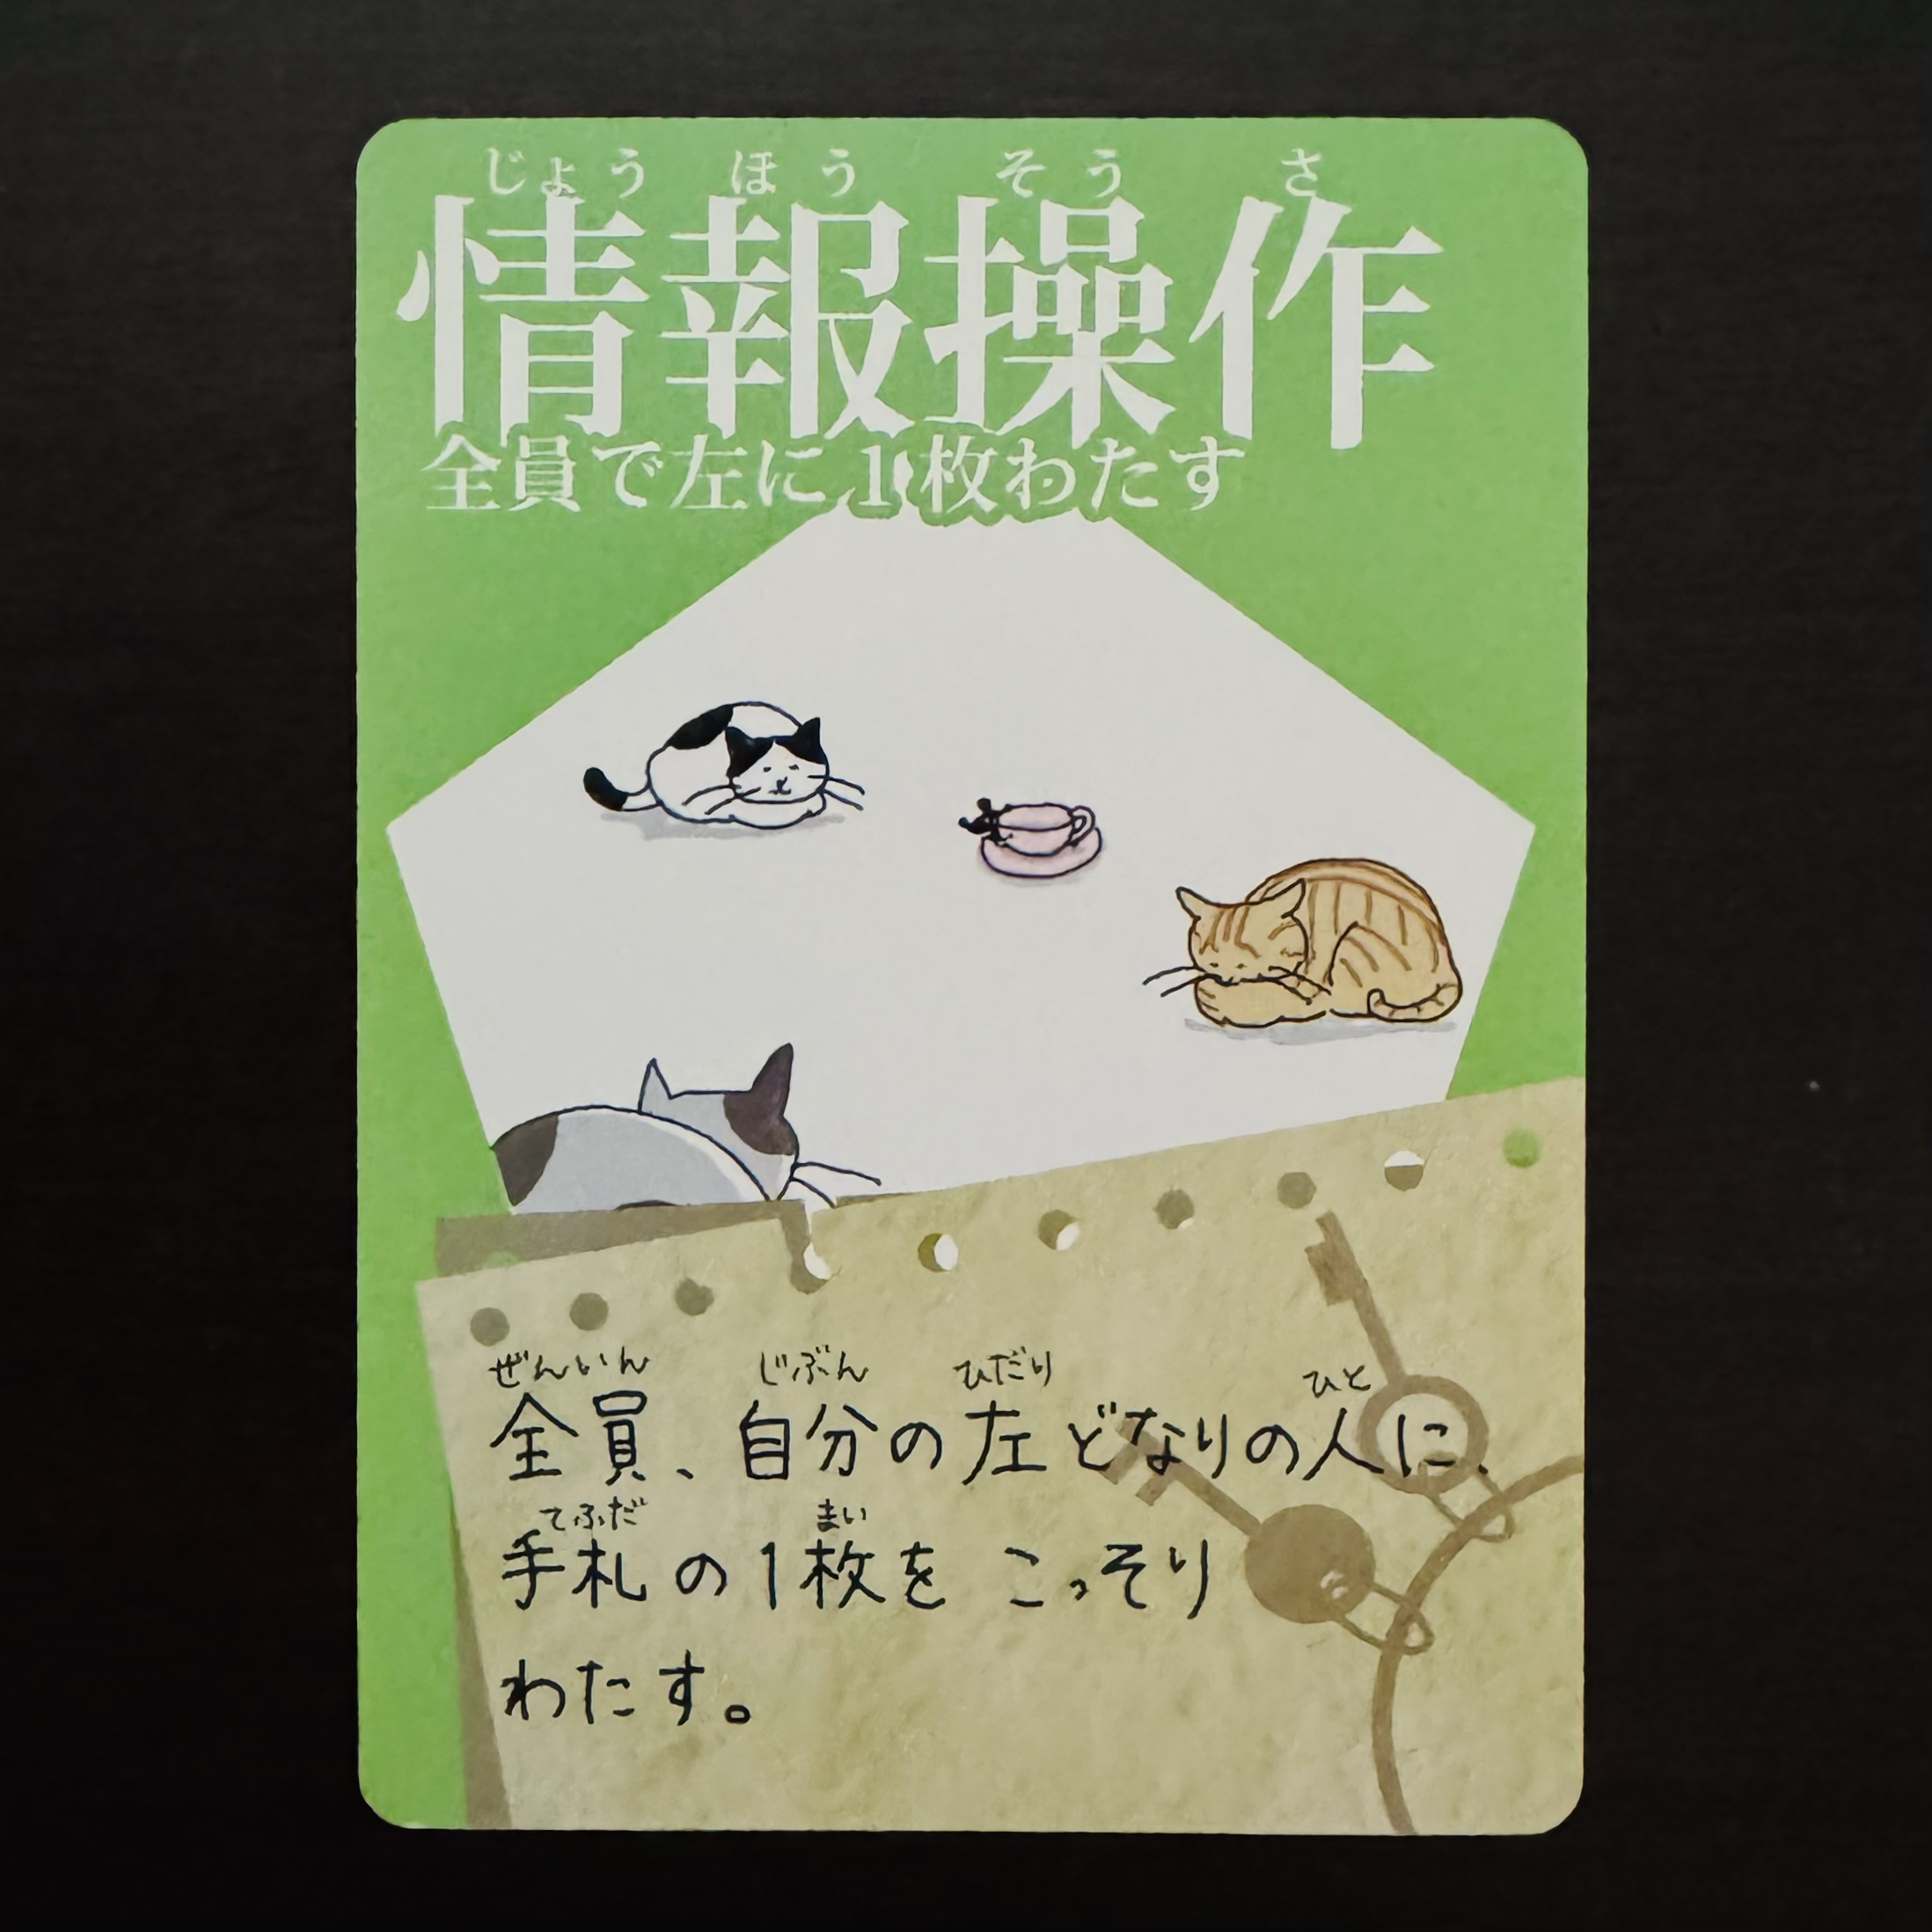 じょうほうそうさ
情報操作
全員で左に1枚わたす
ぜんいん じぶん ひだり ひと
全員、自分の左どなりの人に、
てふだ まい
手札の1枚を こっそり
わたす。